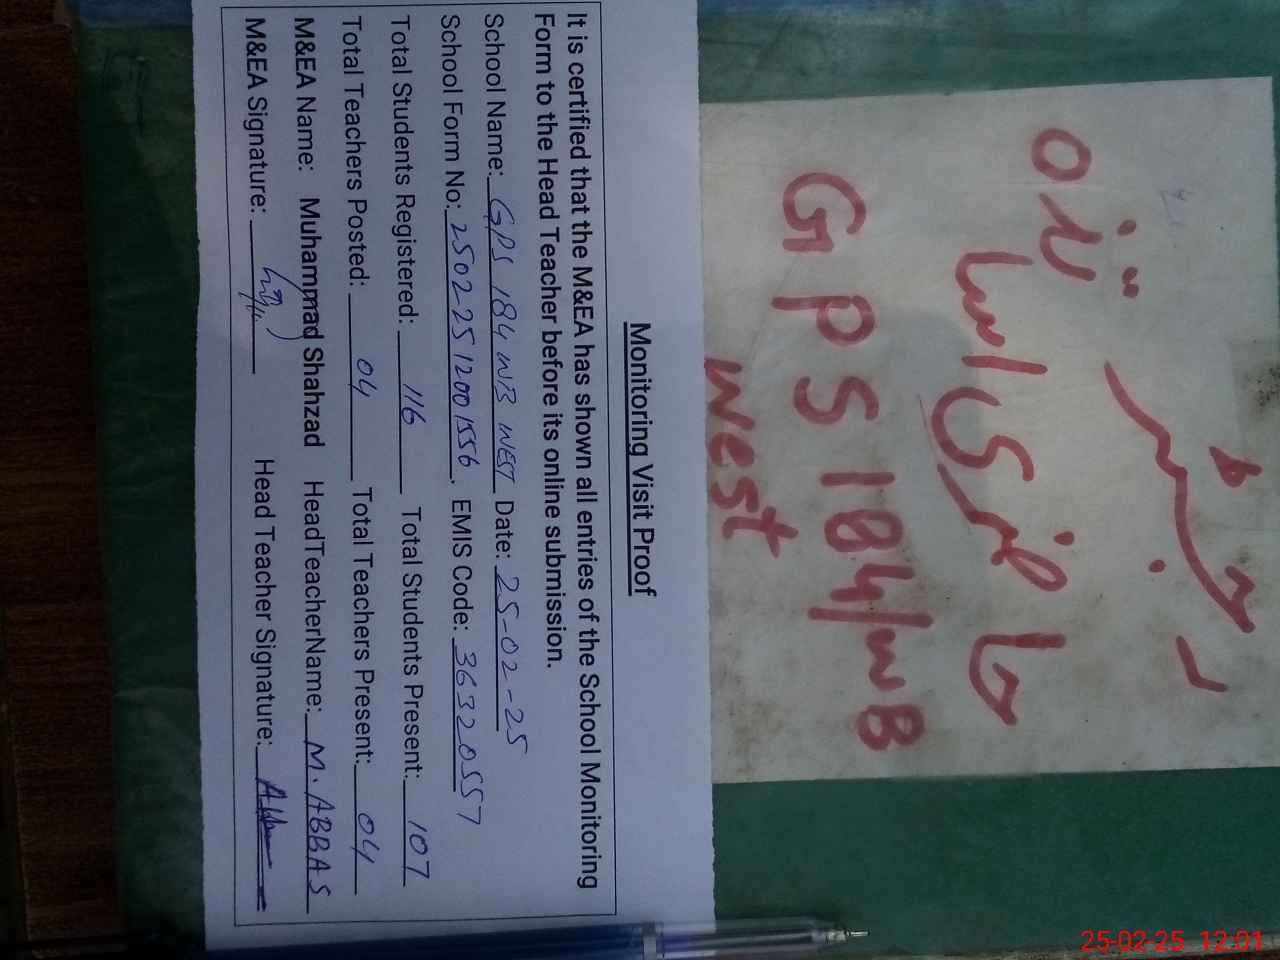 GPS 184/WB
West
Monitoring Visit Proof
It is certified that the M&EA has shown all entries of the School Monitoring
Form to the Head Teacher before its online submission.
School Name: GPS 184 WB WEST Date: 25-02-25
School Form No: 25022512001556. EMIS Code: 36320557
Total Students Registered: 116 Total Students Present: 107
Total Teachers Posted: 04 Total Teachers Present: 04
M&EA Name: Muhammad Shahzad HeadTeacherName: M. ABBAS
M&EA Signature: Head Teacher Signature:
25-02-25 12:01